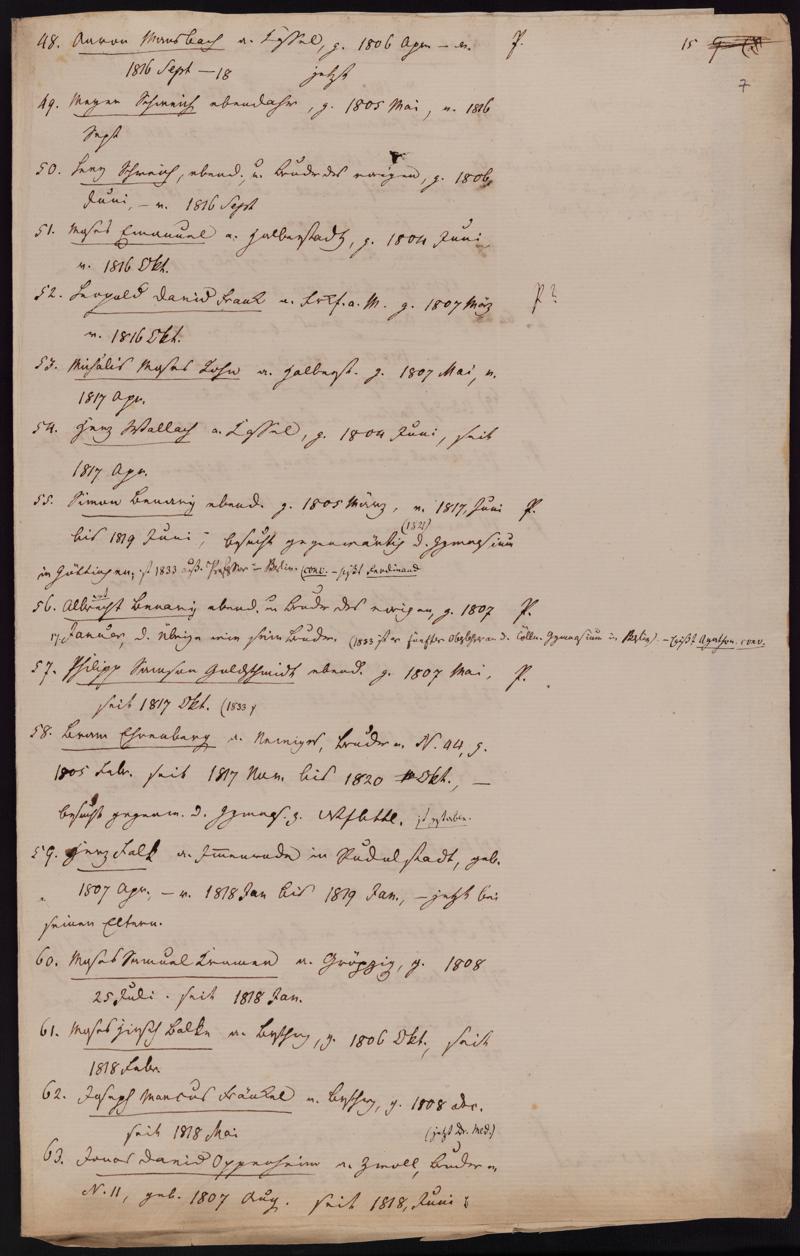 15
7
48. Aaron Mansbach a. Cassel, g. 1806 Apr. – v. P.
1816 Sept – 18 jetzt
49. Meyer Schweich ebendaher, g. 1805 Mai, v. 1816
Sept
50. Levy Schweich, ebend. u. Bruder des vorigen, g. 1806,
Juni, – v. 1816 Sept
51. Moses Emanuel a. Halberstadt, g. 1804 Juni
v. 1816 Okt.
52. Leopold David Frank a. Frkf. a. M. g. 1807 März P?
v. 1816 Okt.
53. Michälis Moses Cohn a. Halberst. g. 1807 Mai, v.
1817 Apr.
54. Herz Wallach a. Cassel, g. 1804 Juni, seit
1817 Apr.
55. Simon Benary ebend. g. 1805 März, v. 1817, Juni P.
bis 1819 Juni; besucht gegenwärtig (1821) d. Gymnasium
in Göttingen, ist 1833 auß. Professor in Berlin. (conv. – heißt Ferdinand
56. Albrecht Benary ebend. u. Bruder des vorigen, g. 1807 P.
17 Januar, d. Übrige wie sein Bruder. (1833 ist er fünfter Oberlehrer an d. Cölln. Gymnasium in Berlin). – heißt Agathon. conv.
57. Philipp Samson Goldschmidt ebend. g. 1807 Mai, P.
seit 1817 Okt. (1833
58. Beram Ehrenberg a. , Bruder v. N. 44, g.
1805 Febr. seit 1817 Nov. bis 1820 Okt., –
besucht gegenw. d. Gymnas. z. Wfbttl. ist gestorben.
59. Herz Falk a. Immenrode in Rudolstadt, geb.
1807 Apr., – v. 1818 Jan bis 1819 Jan., – jetzt bei
seinen Eltern.
60. Moses Samuel Cramer a. Gröpzig, g. 1808
25 Juli. seit 1818 Jan.
61. Moses Hirsch a. , g. 1806 Okt., seit
1818 Febr
62. Joseph Marcus Fränkel a. , g. 1808 Dec.
seit 1818 Mai (jetzt Dr. Med.)
63. Jonas David Oppenheim a. Zwoll, Bruder v
N. 11, geb. 1807 Aug. seit 1818, Juni